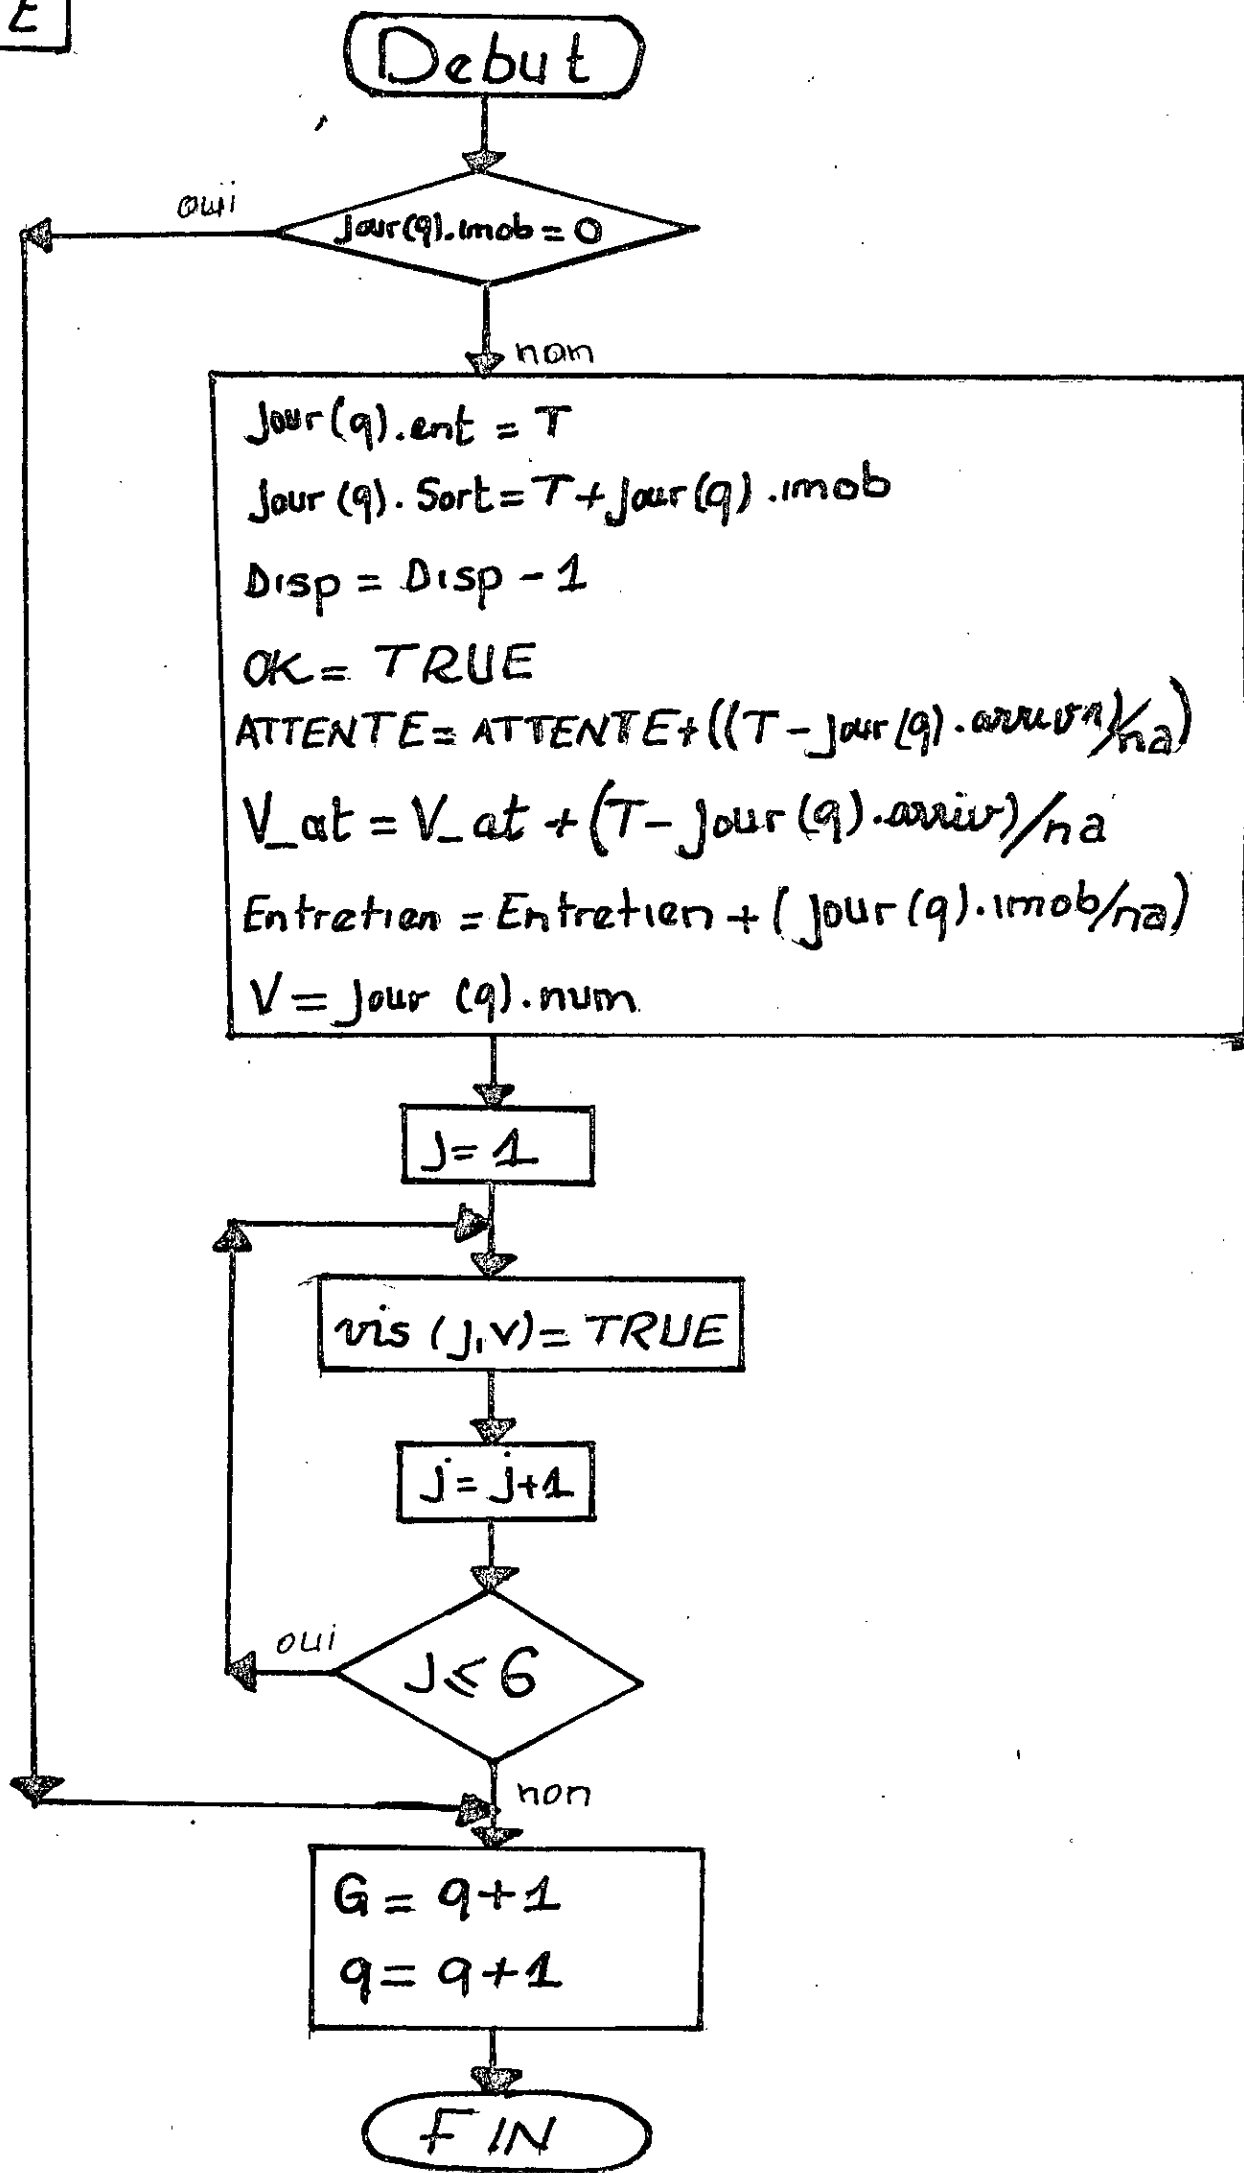 E
Debut
oui
jour(q).imob = 0
non
jour(q).ent = T
jour(q).Sort = T + jour(q).imob
Disp = Disp - 1
OK = TRUE
ATTENTE = ATTENTE + ((T - jour(q). /na)
V_at = V_at + (T - jour(q).arriv)/na
Entretien = Entretien + (jour(q).imob/na)
V = jour (q).num
J = 1
vis (J,V) = TRUE
j = j+1
oui
J ≤ 6
non
G = q+1
q = q+1
FIN